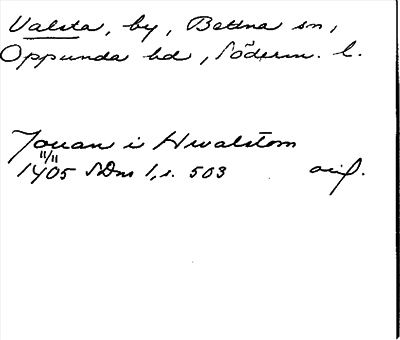 Valsta, by, Bettna sn,
Oppunda hd, Söderm. l.
Jouan i Hwalstom
11/11
1405 SDns 1, s. 503 orig.